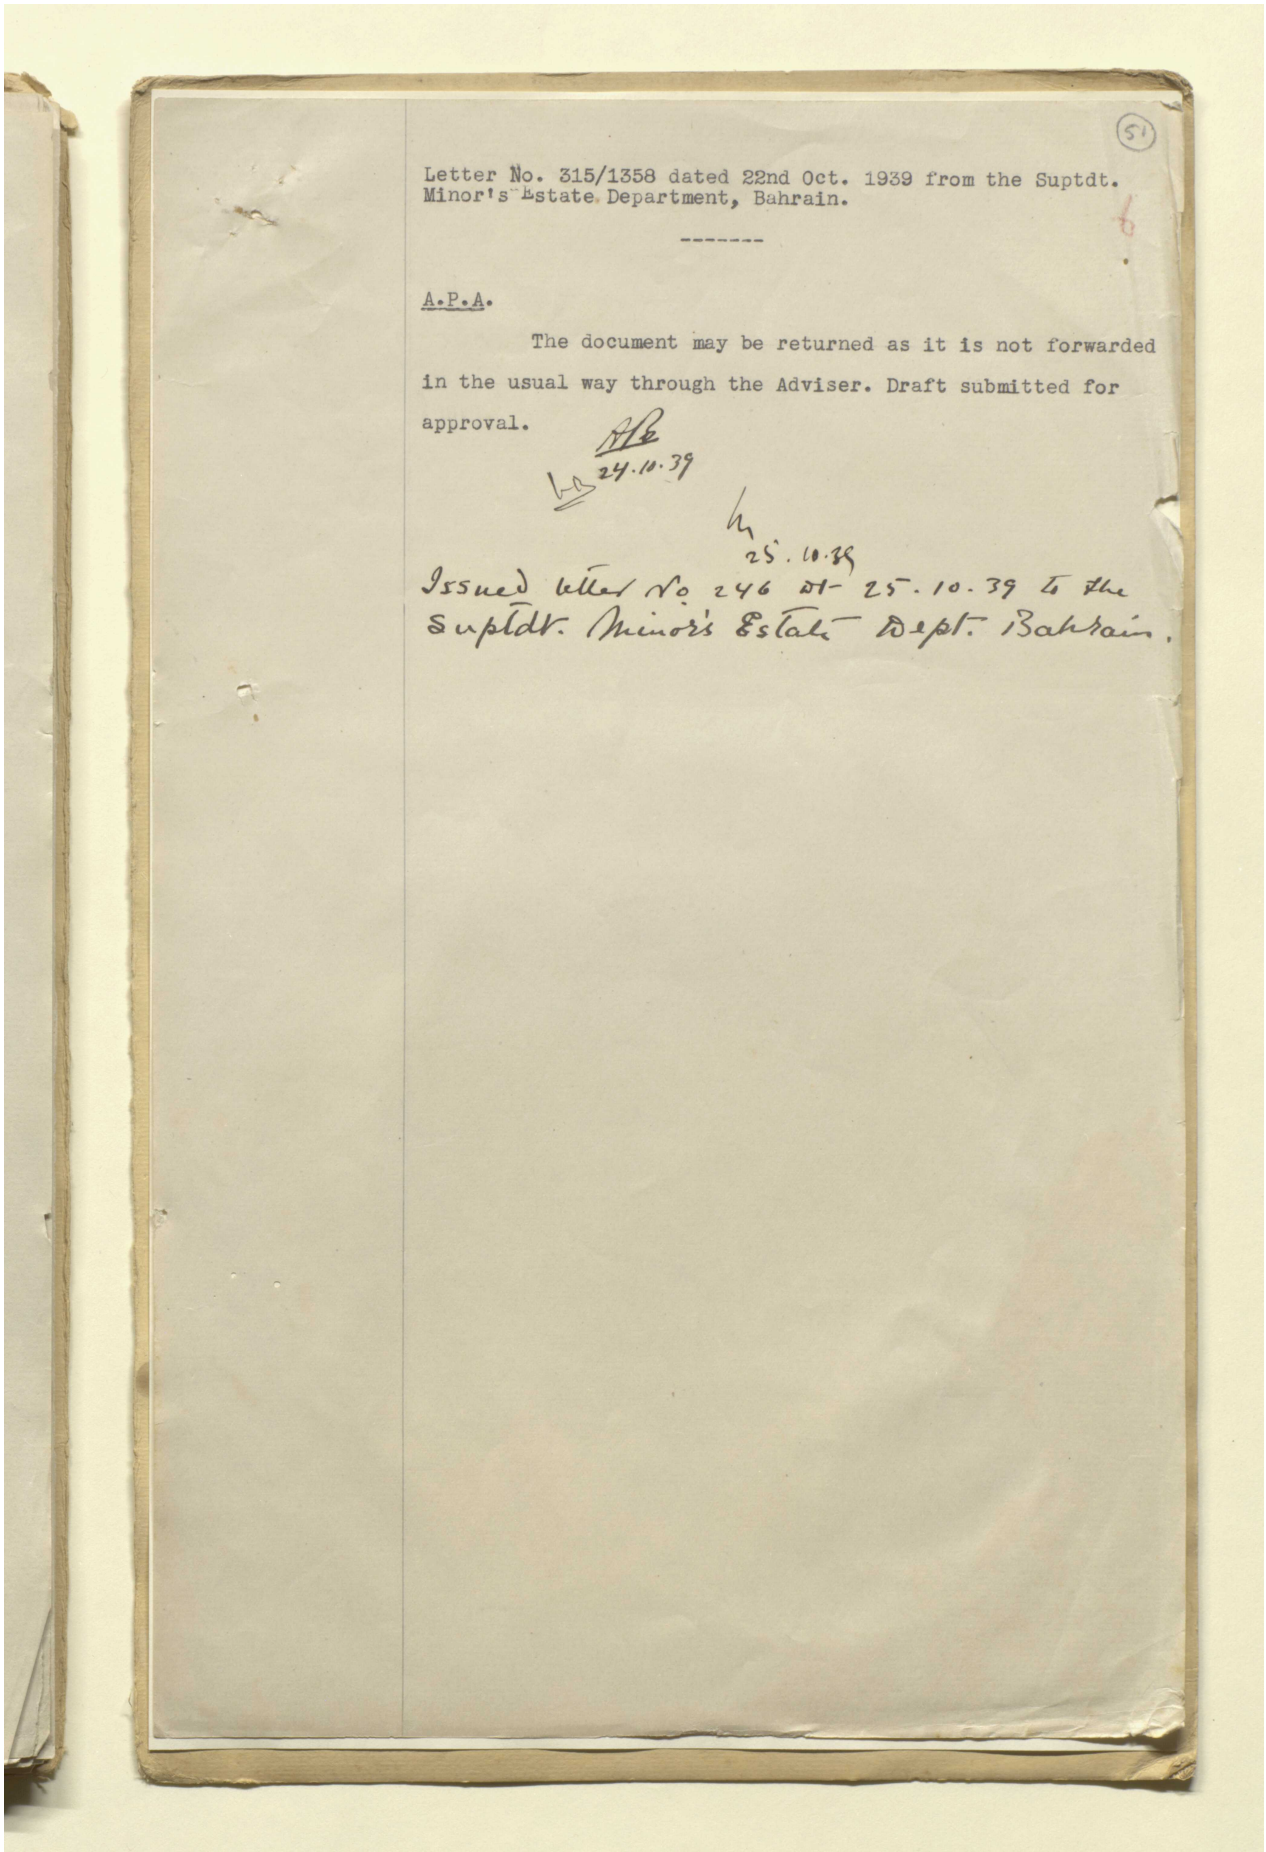 51
Letter No. 315/1358 dated 22nd Oct. 1939 from the Suptdt.
Minor's Estate Department, Bahrain.
-------
6
A.P.A.
The document may be returned as it is not forwarded
in the usual way through the Adviser. Draft submitted for
approval.
24.10.39
25.10.39
Issued letter No. 246 dt 25.10.39 to the
Suptdt. Minor's Estate Dept. Bahrain.